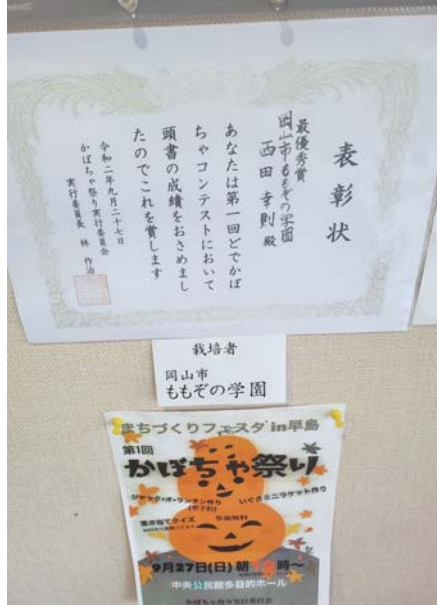 表彰状
最優秀賞
岡山市ももぞの学園
西田幸則殿
あなたは第一回どでかぼ
ちゃコンテストにおいて
頭書の成績をおさめまし
たのでこれを賞します
令和二年九月二十七日
かぼちゃ祭り実行委員会
実行委員長 林 作治
栽培者
岡山市
ももぞの学園
まちづくりフェスタin早島
第1回
かぼちゃ祭り
ジャック・オ・ランタン作り
いぐさミニラケット作り
(要予約)
参加無料
重さ当てクイズ
9月27日(日) 朝
時〜
中央公民館多目的ホール
かぼちゃ祭り実行委員会